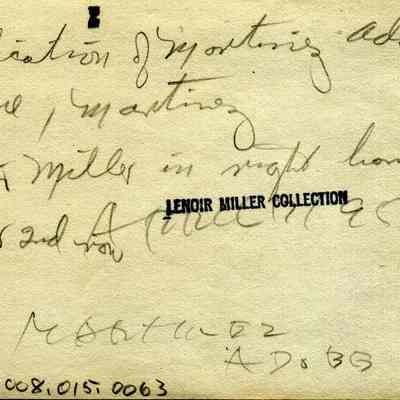 ication of Martinez Ado
, Martinez
Miller in right
LENOIR MILLER COLLECTION
2nd row
MARTINEZ
ADOBE
008.015.0063